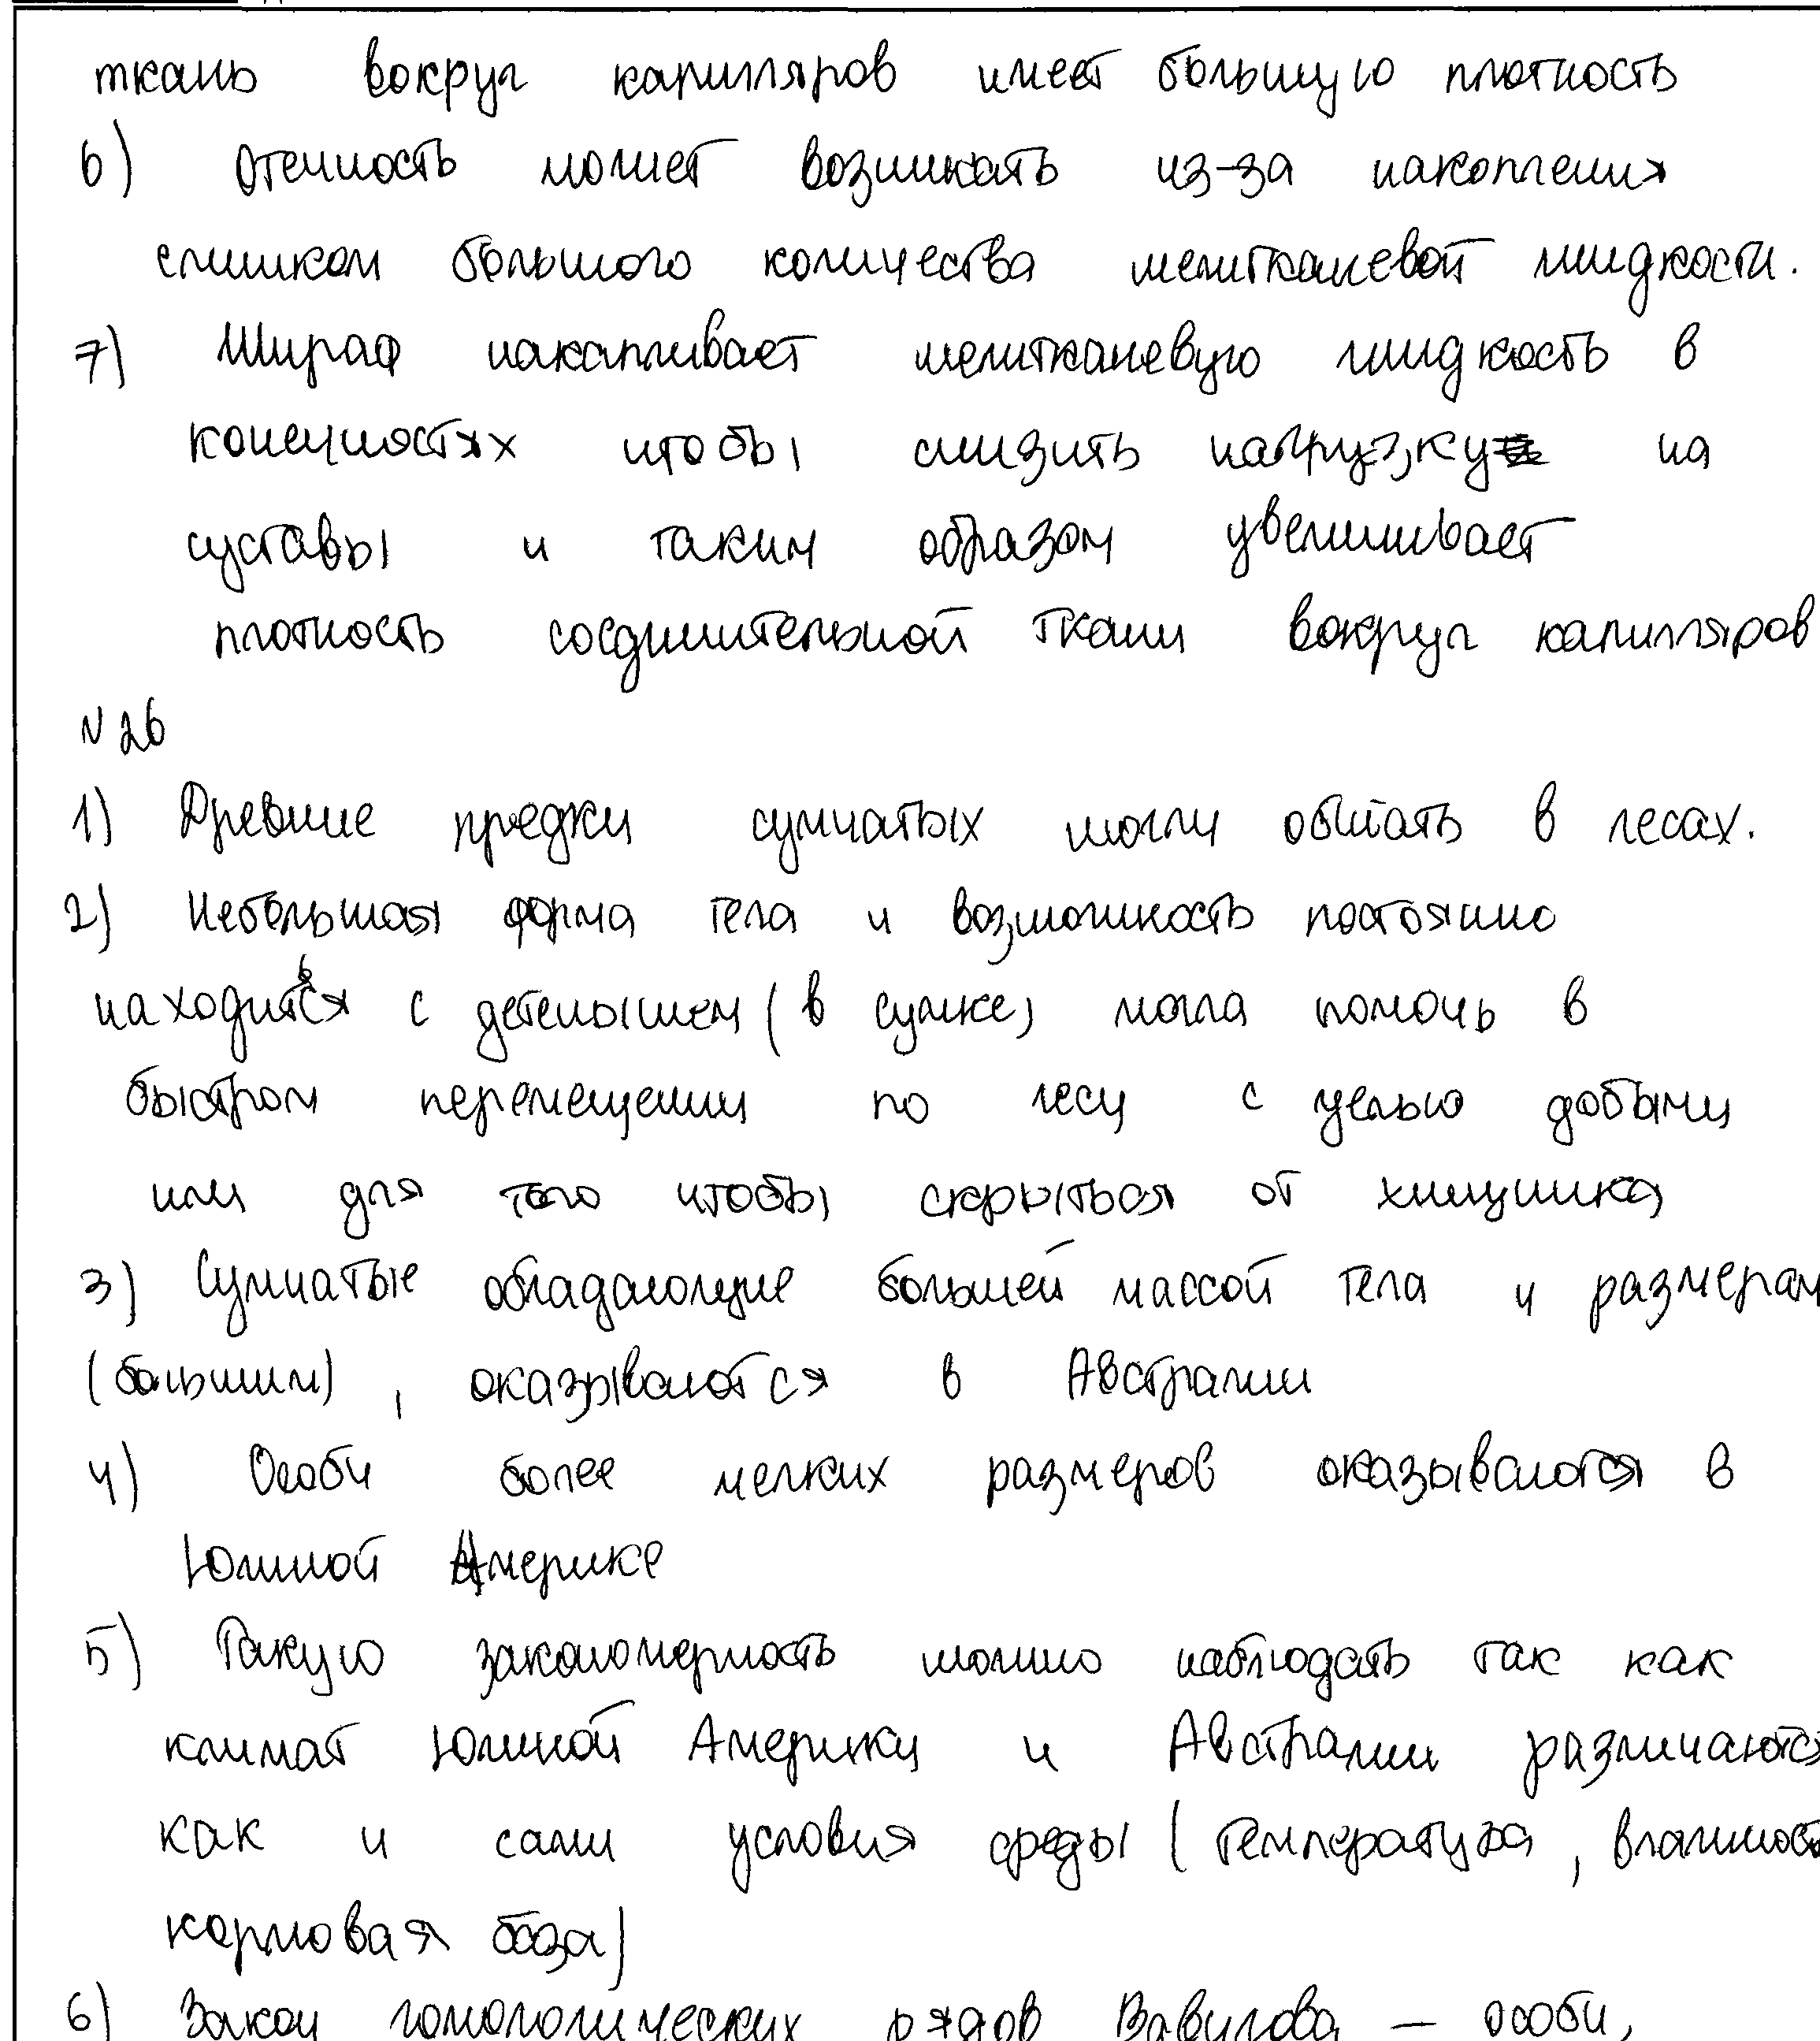 ткань вокруг капилляров имеет большую плотность
6) Отечность может возникать из-за накопления
слишком большого количества межтканевой жидкости.
7) Жираф накапливает межтканевую жидкость в
конечностях чтобы снизить нагрузку на
суставы и таким образом увеличивает
плотность соединительной ткани вокруг капилляров
№26
1) Древние предки сумчатых могли обитать в лесах.
2) Небольшая форма тела и возможность постоянно
находиться с детенышем (в сумке) могла помочь в
быстром перемещении по лесу с целью добычи
или для того чтобы скрыться от хищника
3) Сумчатые обладающие большей массой тела и размерам
(большим), оказываются в Австралии
4) Особи более мелких размеров оказываются в
Южной Америке
5) Такую закономерность можно наблюдать так как
климат Южной Америки и Австралии различаются
как и сами условия среды (температура, влажност
кормовая база)
6) Закон гомологических рядов Вавилова – особи,